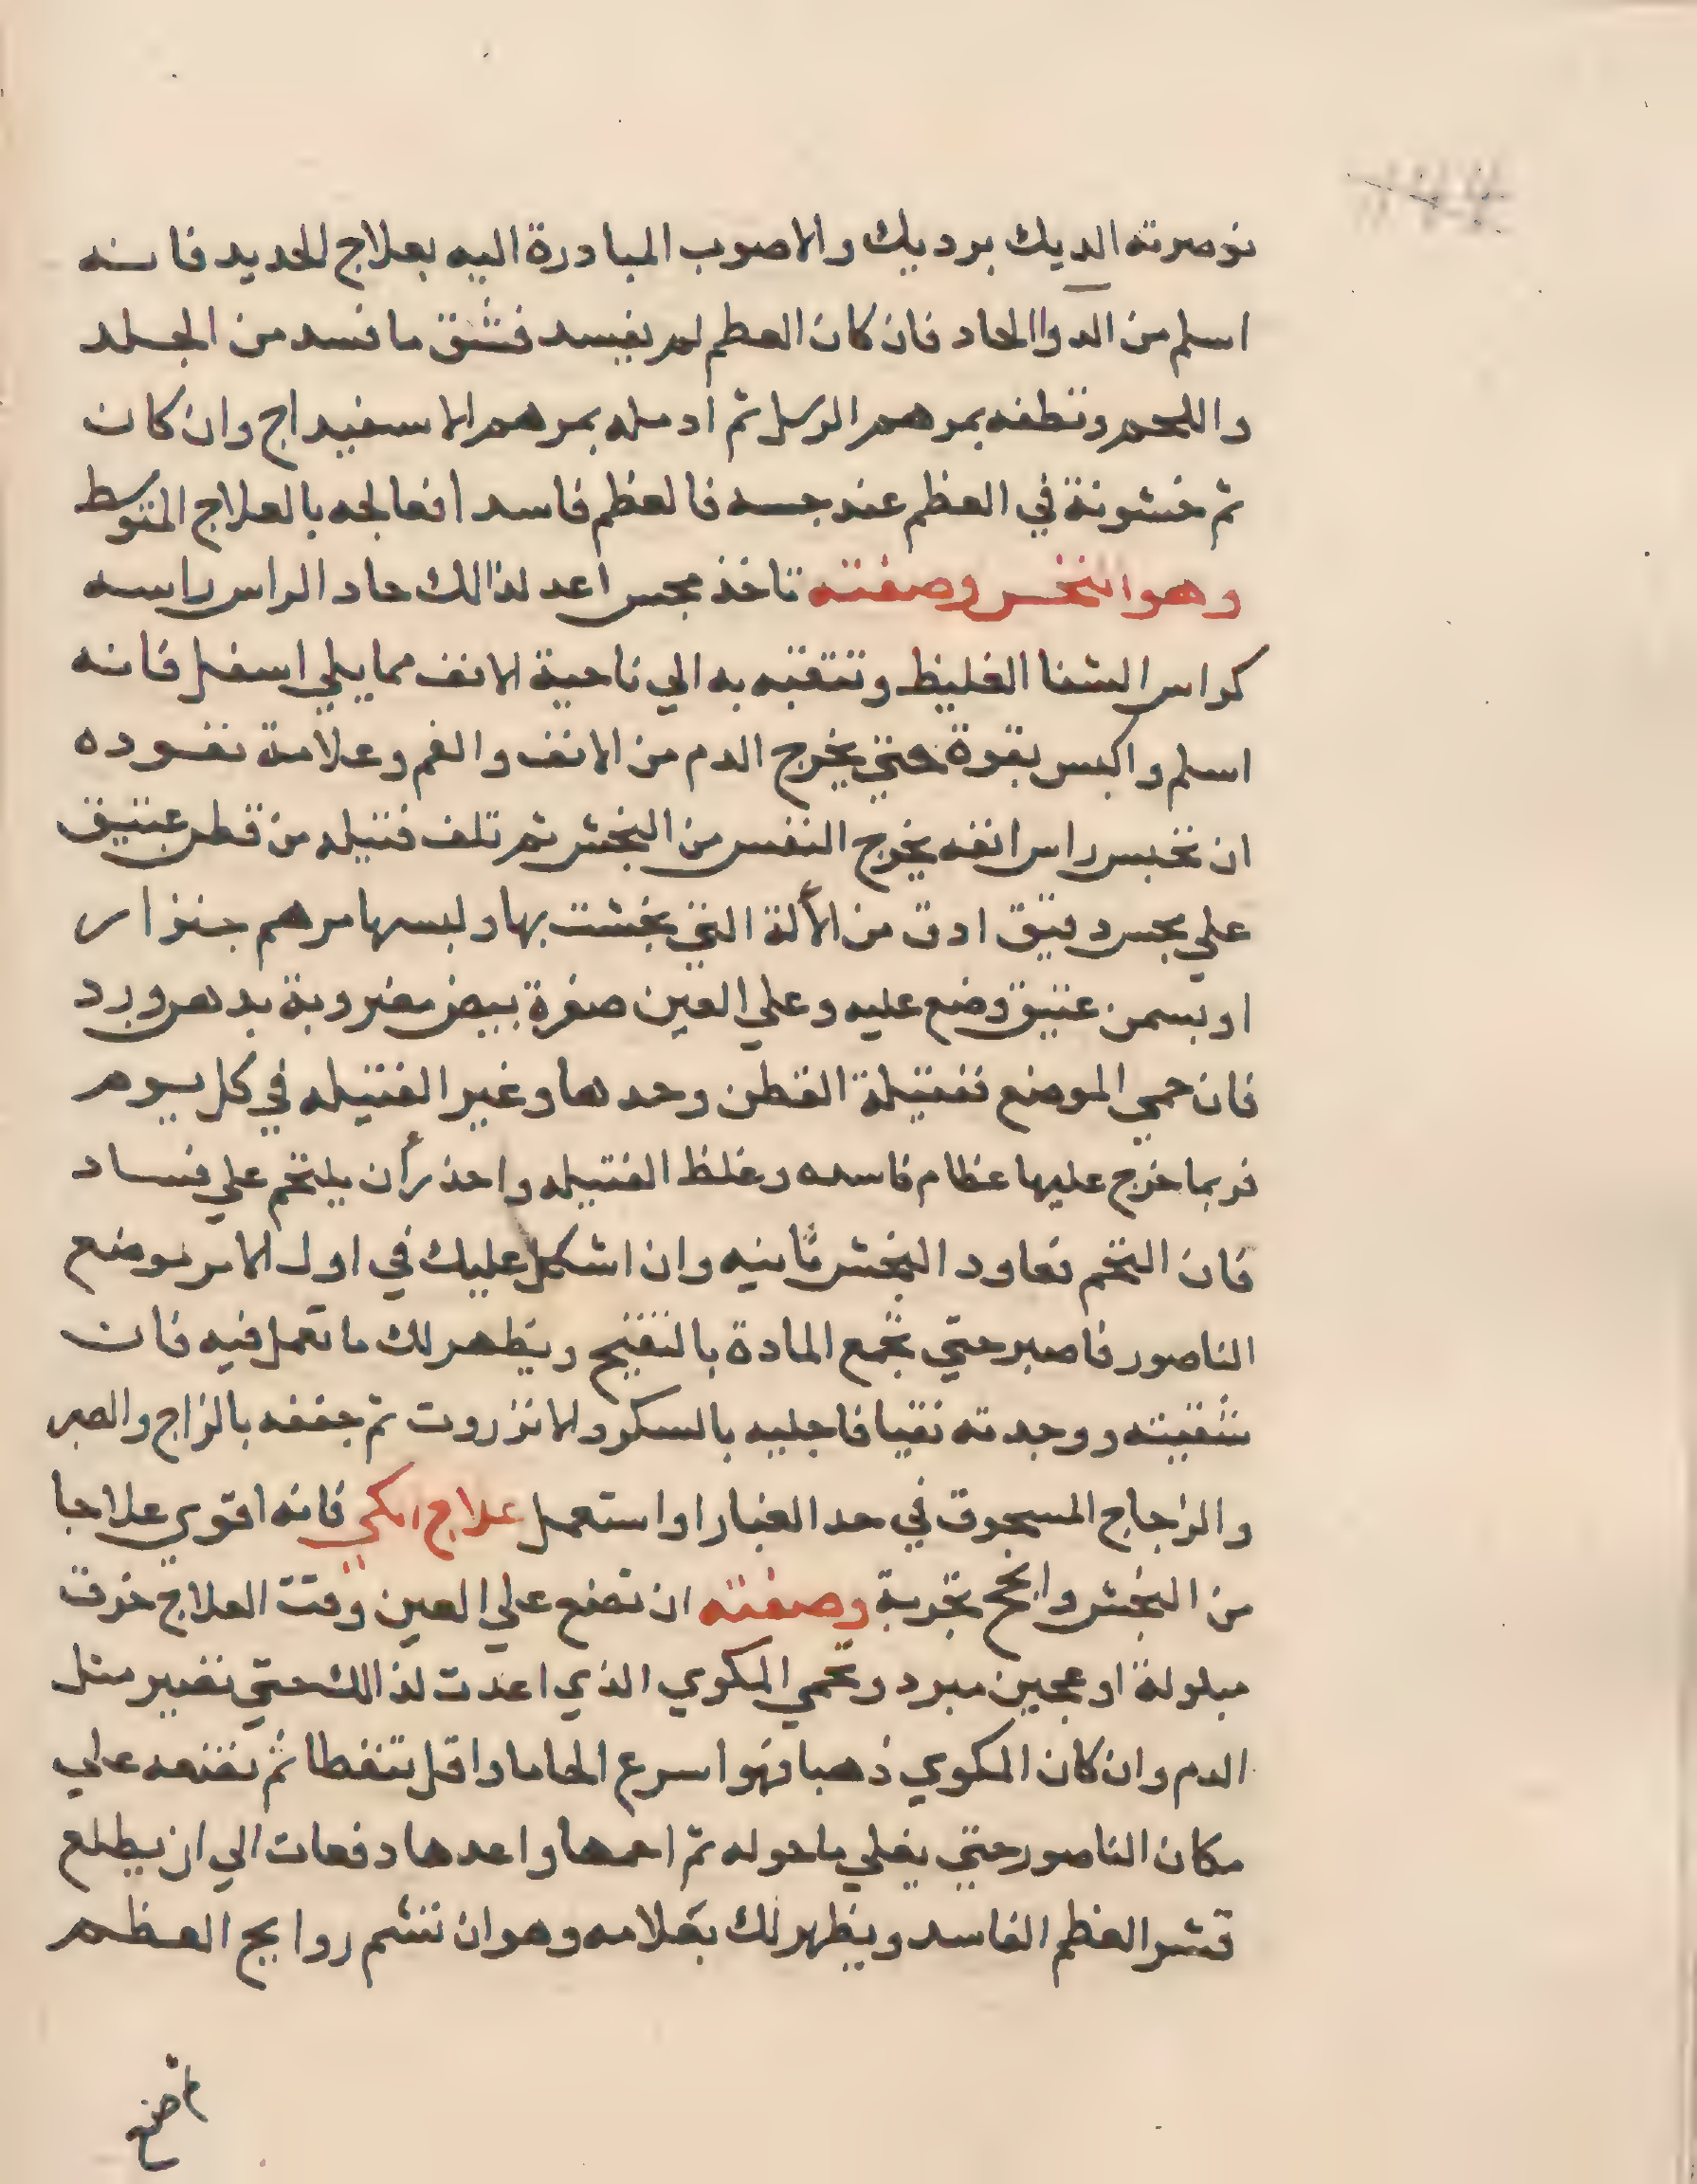 نوصرته الديك برديك والاصوب المبادرة اليه بعلاج الحديد فانه
اسلم من الدوا الحاد فان كان العظم لم يفسد فشق ما فسد من الجلد
واللحم ونظفه بمرهم الرسل ثم ادمله بمرهم الاسفيداج وان كان
ثم خشونة في العظم عند جسه فالعظم فاسد افعالجه بالعلاج المتوسط
وهو النخس وصفته تاخذ مجس اعد لذالك حاد الراس راسه
كراس الشفا الغليظ وتثقبه به الي ناحية الانف مما يلي اسفل فانه
اسلم واكبس بقوة حتي يخرج الدم من الانف والفم وعلامة نفوده
ان تحبس راس انفه يخرج النفس من البخش ثم تلف فتيله من قطن عتيق
علي مجس دقيق ادق من الألة التي بخشت بها ولبسها مرهم جنزار
او بسمن عتيق وضع عليه وعلي العين صفرة بيض مضروبة بدهن ورد
فان حمي الموضع ففتيلة القطن وحدها وغير الفتيله في كل يوم
فربما خرج عليها عظام فاسده وغلظ الفتيله واحذر أن يلتحم علي فساد
فان التحم فعاود البخش ثانيه وان اشكل عليك في اول الامر موضع
الناصور فاصبر حتي تجمع المادة بالتقيح ويظهر لك ما تعمل فيه فان
شقيته ووجدته نقيا فاجليه بالسكر والانزروت ثم جففه بالزاج والصبر
والزجاج المسحوق في حد الغبار او استعمل علاج الكي فانه اقوي علاجا
من البخش وانجح تجربة وصفته ان تضع علي العين وقت العلاج خرق
مبلولة او عجين مبرد وتحمي المكوي الذي اعدت لذالك حتي تصير مثل
الدم وان كان المكوي ذهبا فهو اسرع الحاما واقل تنفطا ثم تضعه علي
مكان الناصور حتي يغلي ما حوله ثم احمها واعدها دفعات الي ان يطلع
قشر العظم الفاسد ويظهر لك بعلامه وهو ان تشم روايح العظم